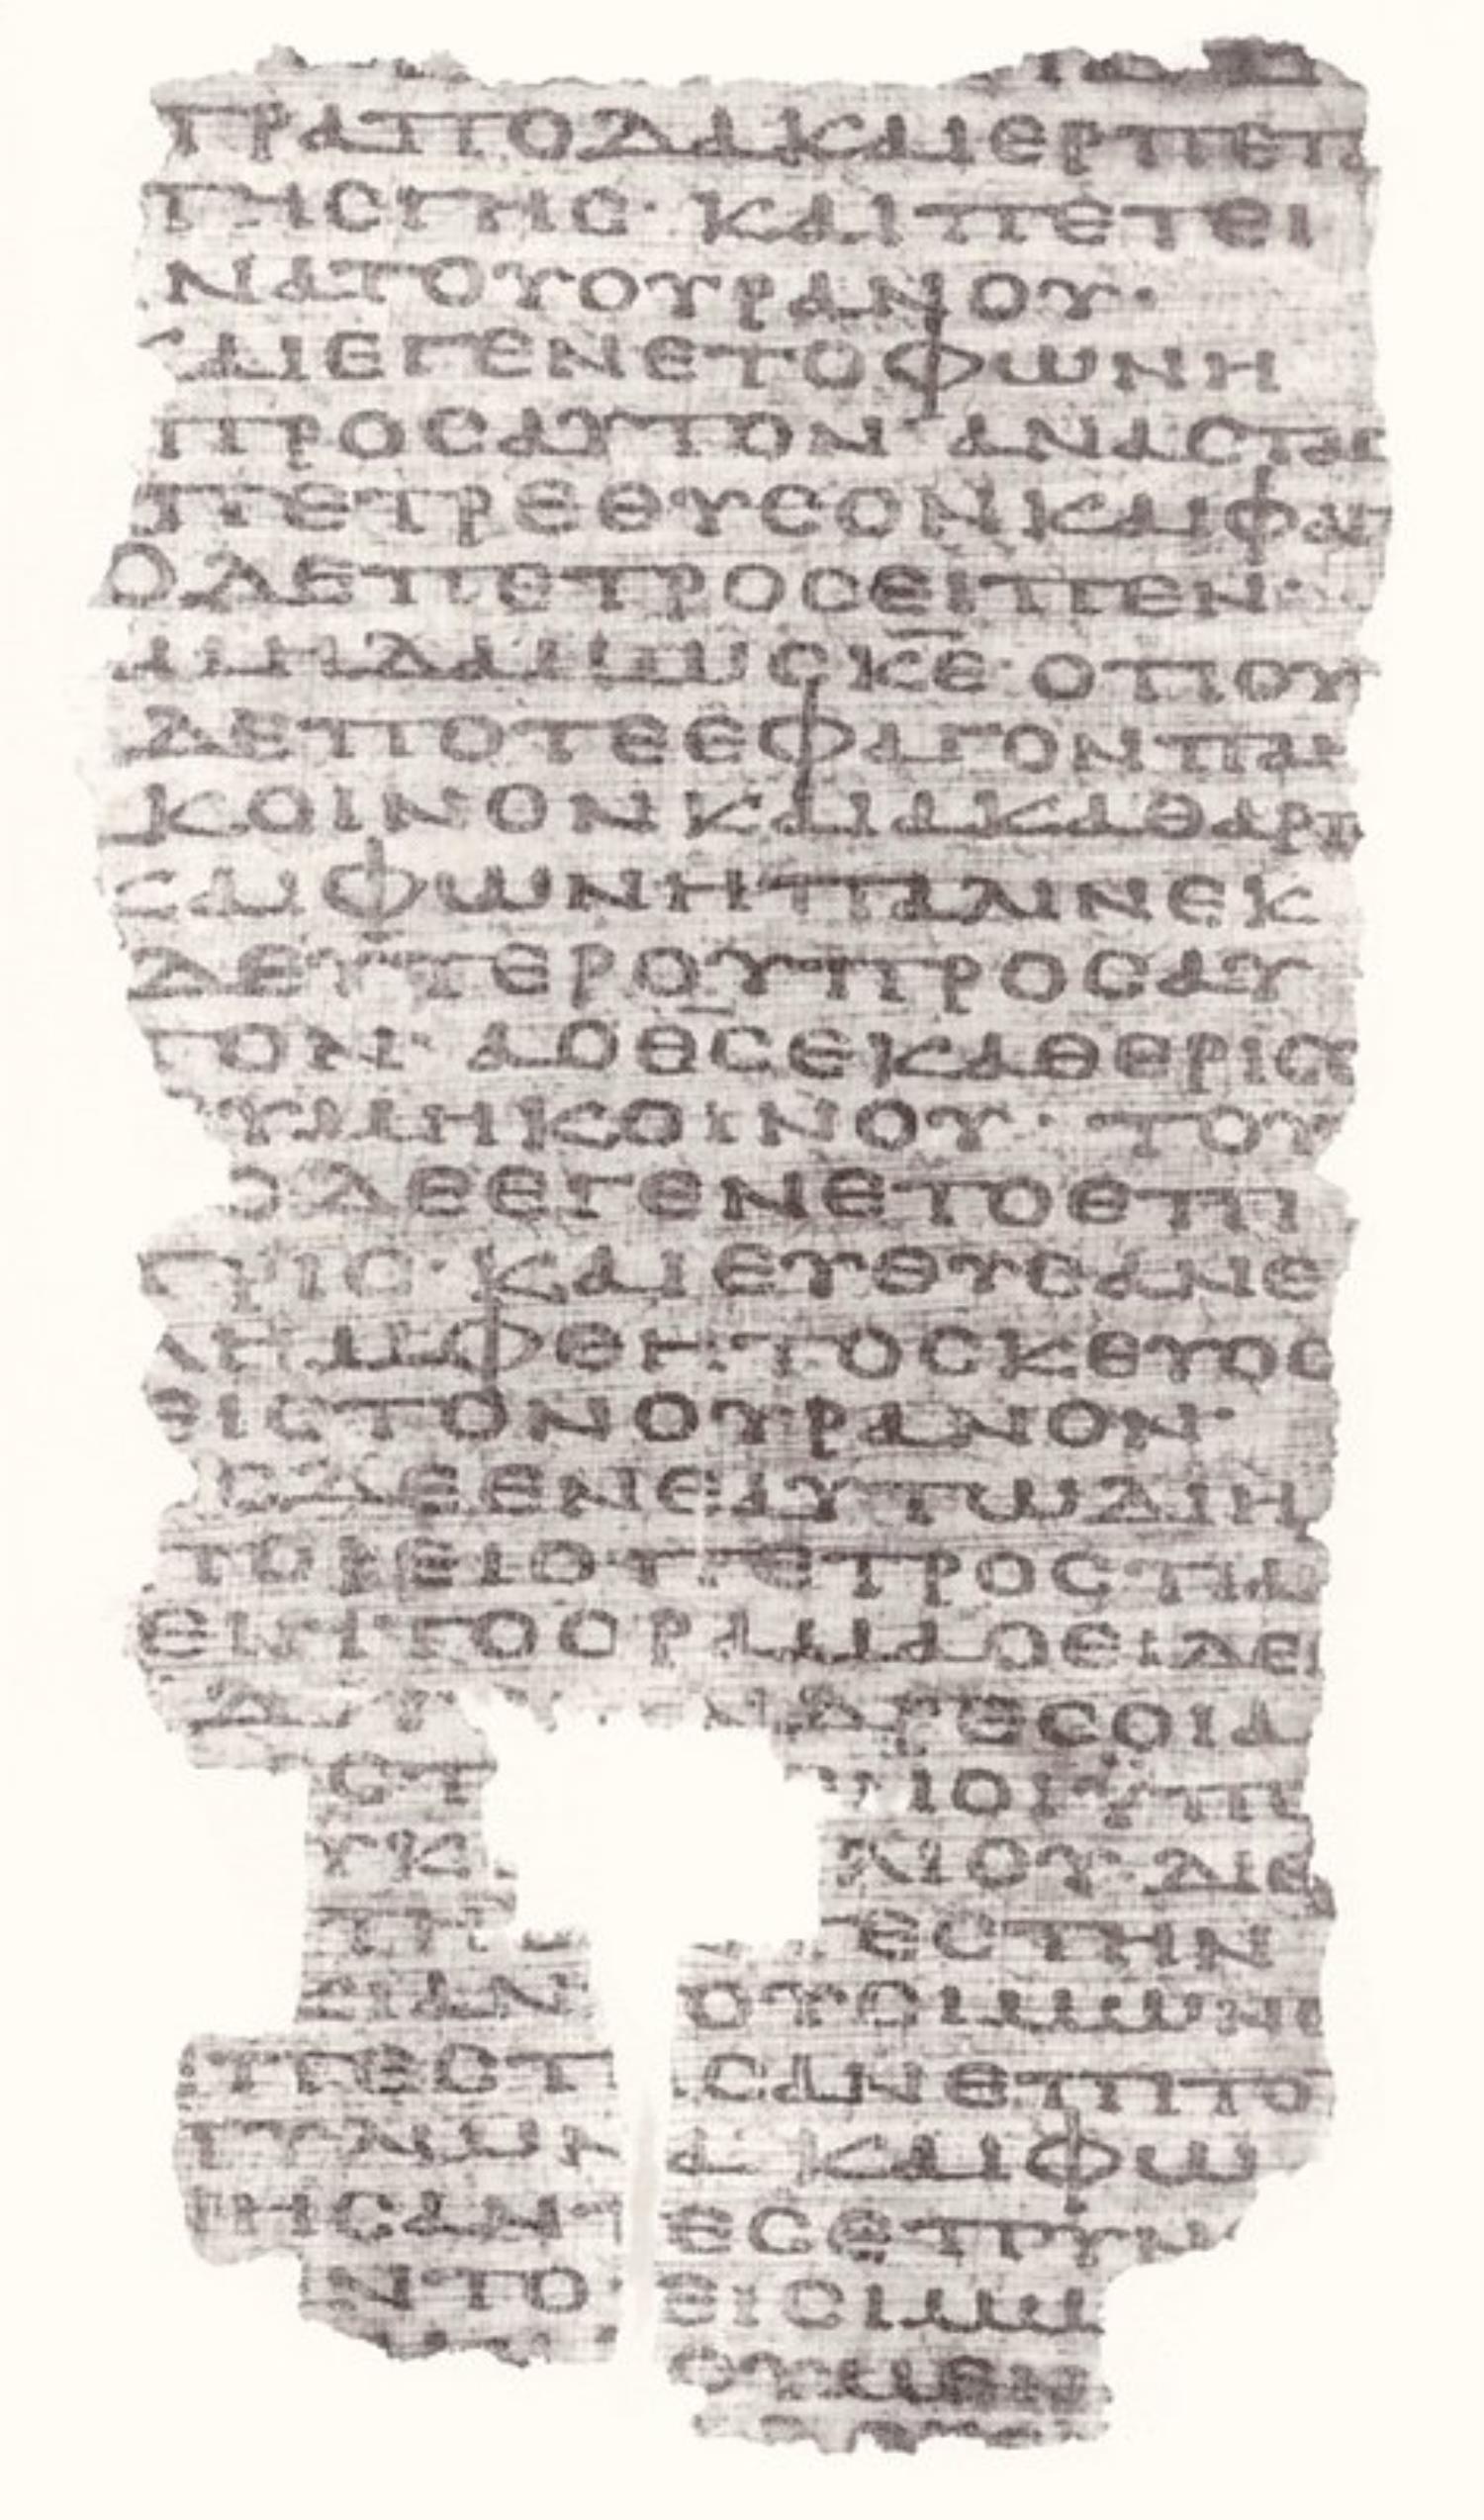 ΤΡΑΠΟΔΑΚΑΙΕΡΠΕΤΑ
ΤΗϹΓΗϹ· ΚΑΙΠΕΤΕΙ
ΝΑΤΟΥΟΥΡΑΝΟΥ·
ΚΑΙΕΓΕΝΕΤΟΦΩΝΗ
ΠΡΟϹΑΥΤΟΝ· ΑΝΑϹΤΑϹ
ΠΕΤΡΕΘΥϹΟΝΚΑΙΦΑΓ
ΟΔΕΠΕΤΡΟϹΕΙΠΕΝ·
ΜΗΔΑΜΩϹΚ̅Ε̅· ΟΤΙΟΥ
ΔΕΠΟΤΕΕΦΑΓΟΝΠΑΝ
ΚΟΙΝΟΝΚΑΙΑΚΑΘΑΡΤ
ΚΑΙΦΩΝΗΠΑΛΙΝΕΚ
ΔΕΥΤΕΡΟΥΠΡΟϹΑΥ
ΤΟΝ· ΑΟΘ̅Ϲ̅ΕΚΑΘΕΡΙϹΕ
ϹΥΜΗΚΟΙΝΟΥ· ΤΟΥ
ΟΔΕΕΓΕΝΕΤΟΕΠΙ
ΤΡΙϹ· ΚΑΙΕΥΘΥϹΑΝΕ
ΛΗΜΦΘΗΤΟϹΚΕΥΟϹ
ΕΙϹΤΟΝΟΥΡΑΝΟΝ·
ΩϹΔΕΕΝΕΑΥΤΩΔΙΗ
ΠΟΡΕΙΟΠΕΤΡΟϹ·ΤΙΑΝ
ΕΙΗΤΟΟΡΑΜΑΟΕΙΔΕΝ
ΑΝΔΡΕϹΟΙΑ
ΟΙΫΠ
ΥΚ ΛΙΟΥ·ΔΙΕ
ΕϹΤΗΝ
ΚΙΑΝ ΟΥϹΙΜΩΝΟϹ
ΕΠΕϹΤΗϹΑΝΕΠΙΤΟ
ΠΥΛΩΝΑ· ΚΑΙΦΩ
ΝΗϹΑΝΤΕϹΕΠΥΝ
ΝΤΟ· ΕΙϹΙΜ